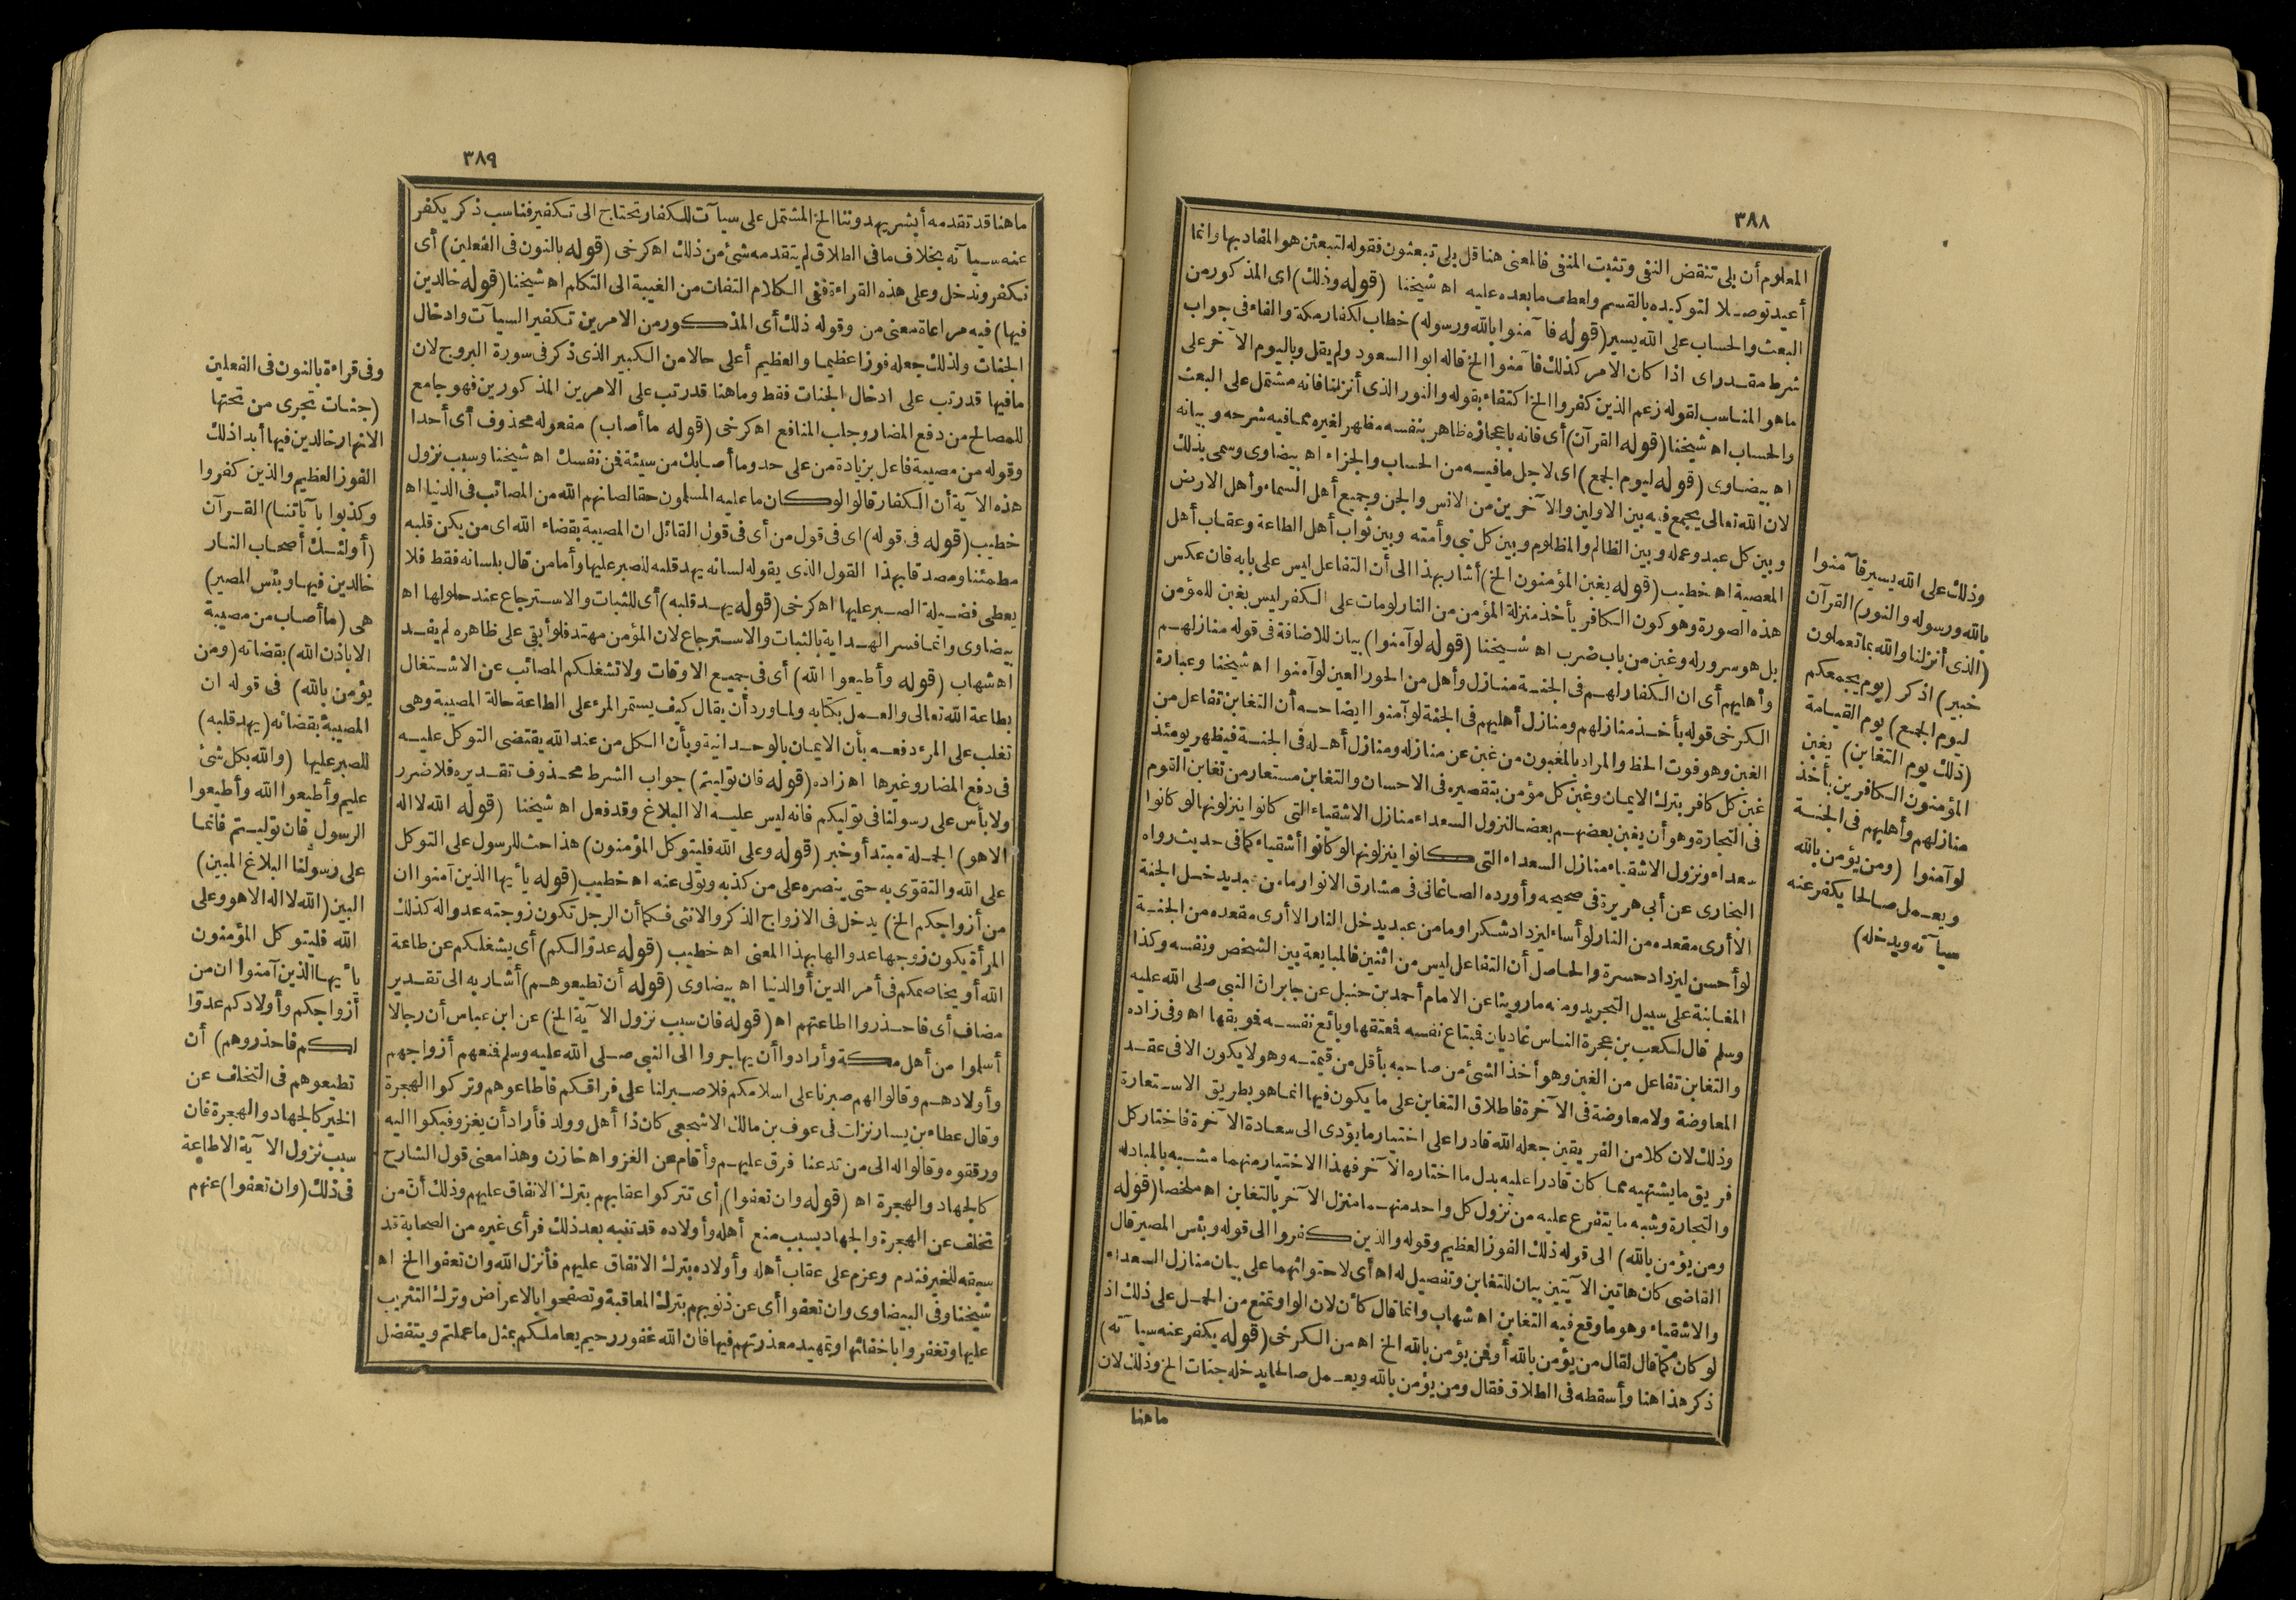 ٣٨٨
المعلوم أن بلى تنقض النفي وتثبت المنفي فالمعنى هنا قل بلى تبعثون فقوله لتبعثن هو المفاد بها وانما
أعيد توصلا لتوكيده بالقسم ولعطف ما بعده عليه اه شيخنا (قوله وذلك) اى المذكور من
البعث والحساب على الله يسير (قوله فآمنوا بالله ورسوله) خطاب لكفار مكة والفاء فى جواب
شرط مقدر اى اذا كان الامر كذلك فآمنوا الخ قاله ابوا السعود ولم يقل وباليوم الآخر على
ما هو المناسب لقوله زعم الذين كفروا الخ اكتفاء بقوله والنور الذى أنزلنا فانه مشتمل على البعث
والحساب اه شيخنا (قوله القرآن) أى فانه باعجازه ظاهر بنفسه مظهر لغيره مما فيه شرحه وبيانه
اه بيضاوى (قوله ليوم الجمع) اى لاجل ما فيه من الحساب والجزاء اه بيضاوى وسمى بذلك
لان الله تعالى يجمع فيه بين الاولين والآخرين من الانس والجن وجميع أهل السماء وأهل الارض
وبين كل عبد وعمله وبين الظالم والمظلوم وبين كل نبى وأمته وبين ثواب أهل الطاعة وعقاب أهل
المعصية اه خطيب (قوله يغبن المؤمنون الخ) أشار بهذا الى أن التفاعل ليس على بابه فان عكس
هذه الصورة وهو كون الكافر يأخذ منزلة المؤمن من النار لومات على الكفر ليس بغبن للمؤمن
بل هو سرور له وغبن من باب ضرب اه شيخنا (قوله لو آمنوا) بيان للاضافة فى قوله منازلهم
وأهليهم أى ان الكفار لهم فى الجنة منازل وأهل من الحور العين لو آمنوا اه شيخنا وعبارة
الكرخى قوله بأخذ منازلهم ومنازل أهليهم فى الجنة لو آمنوا ايضاحه أن التغابن تفاعل من
الغبن وهو فوت الحظ والمراد بالمغبون من غبن عن منازله ومنازل أهله فى الجنة فيظهر يومئذ
غبن كل كافر بترك الايمان وغبن كل مؤمن بتقصيره فى الاحسان والتغابن مستعار من تغابن القوم
فى التجارة وهو أن يغبن بعضهم بعضا لنزول السعداء منازل الاشقياء التى كانوا ينزلونها لو كانوا
سعداء ونزول الاشقياء منازل السعداء التى كانوا ينزلونها لو كانوا أشقياء كما فى حديث رواه
البخارى عن أبى هريرة فى صحيحه وأورده الصاغانى فى مشارق الانوار ما من عبد يدخل الجنة
الا أرى مقعده من النار لو أساء ليزداد شكرا وما من عبد يدخل النار الا أرى مقعده من الجنة
لو أحسن ليزداد حسرة والحاصل أن التفاعل ليس من اثنين فالمبايعة بين الشخص ونفسه وكذا
المغابنة على سبيل التجريد ومنه ما روينا عن الامام أحمد بن حنبل عن جابر ان النبى صلى الله عليه
وسلم قال لكعب بن عجرة الناس غاديان فمبتاع نفسه فمعتقها وبائع نفسه فموبقها اه وفى زاده
والتغابن تفاعل من الغبن وهو أخذ الشئ من صاحبه بأقل من قيمته وهو لا يكون الا فى عقد
المعاوضة ولا معاوضة فى الآخرة فاطلاق التغابن على ما يكون فيها انما هو بطريق الاستعارة
وذلك لان كلا من الفريقين جعله الله قادرا على اختيار ما يؤدى الى سعادة الآخرة فاختار كل
فريق ما يشتهيه مما كان قادرا عليه بدل ما اختاره الآخر فهذا الاختيار منهما مشبه بالمبادله
والتجارة وشبه ما يتفرع عليه من نزول كل واحد منهما منزل الآخر بالتغابن اه ملخصا (قوله
ومن يؤمن بالله) الى قوله ذلك الفوز العظيم وقوله والذين كفروا الى قوله وبئس المصير قال
القاضى كان هاتين الآيتين بيان للتغابن وتفصيل له اه أى لاحتوائهما على بيان منازل السعداء
والاشقياء وهو ما وقع فيه التغابن اه شهاب وانما قال كأن لان الواو تمنع من الحمل على ذلك اذ
لو كان كما قال لقال من يؤمن بالله أو فمن يؤمن بالله الخ اه من الكرخى (قوله يكفر عنه سيآته)
ذكر هذا هنا وأسقطه فى الطلاق فقال ومن يؤمن بالله ويعمل صالحا يدخله جنات الخ وذلك لان
ما هنا
وذلك على الله يسير فآمنوا
بالله ورسوله والنور) القرآن
(الذى أنزلنا والله بما تعملون
خبير) اذكر (يوم يجمعكم
ليوم الجمع) يوم القيامة
(ذلك يوم التغابن) يغبن
المؤمنون الكافرين بأخذ
منازلهم وأهليهم فى الجنة
لو آمنوا (ومن يؤمن بالله
ويعمل صالحا يكفر عنه
سيآته ويدخله)
٣٨٩
ما هنا قد تقدمه أبشر يهدوننا الخ المشتمل على سيآت للكفار تحتاج الى تكفير فناسب ذكر يكفر
عنه سيآته بخلاف ما فى الطلاق لم يتقدمه شئ من ذلك اه كرخى (قوله بالنون فى الفعلين) أى
نكفر وندخل وعلى هذه القراءة ففى الكلام التفات من الغيبة الى التكلم اه شيخنا (قوله خالدين
فيها) فيه مراعاة معنى من وقوله ذلك أى المذكور من الامرين تكفير السيآت وادخال
الجنات ولذلك جعله فوزا عظيما والعظيم أعلى حالا من الكبير الذى ذكر فى سورة البروج لان
ما فيها قد رتب على ادخال الجنات فقط وما هنا قد رتب على الامرين المذكورين فهو جامع
للمصالح من دفع المضار وجلب المنافع اه كرخى (قوله ما أصاب) مفعوله محذوف أى أحدا
وقوله من مصيبة فاعل بزيادة من على حد وما أصابك من سيئة فمن نفسك اه شيخنا وسبب نزول
هذه الآية أن الكفار قالوا لو كان ما عليه المسلمون حقا لصانهم الله من المصائب فى الدنيا اه
خطيب (قوله فى قوله) اى فى قول من أى فى قول القائل ان المصيبة بقضاء الله اى من يكن قلبه
مطمئنا ومصدقا بهذا القول الذى يقوله لسانه يهد قلبه للصبر عليها وأما من قال بلسانه فقط فلا
يعطى فضيلة الصبر عليها اه كرخى (قوله يهد قلبه) أى للثبات والاسترجاع عند حلولها اه
بيضاوى وانما فسر الهداية بالثبات والاسترجاع لان المؤمن مهتد فلو أبقى على ظاهره لم يفد
اه شهاب (قوله وأطيعوا الله) أى فى جميع الاوقات ولا تشغلكم المصائب عن الاشتغال
بطاعة الله تعالى والعمل بكتابه ولما ورد أن يقال كيف يستمر المرء على الطاعة حالة المصيبة وهى
تغلب على المرء دفعه بأن الايمان بالوحدانية وبأن الكل من عند الله يقتضى التوكل عليه
فى دفع المضار وغيرها اه زاده (قوله فان توليتم) جواب الشرط محذوف تقديره فلا ضرر
ولا بأس على رسولنا فى توليكم فانه ليس عليه الا البلاغ وقد فعل اه شيخنا (قوله الله لا اله
الا هو) الجملة مبتدأ وخبر (قوله وعلى الله فليتوكل المؤمنون) هذا حث للرسول على التوكل
على الله والتقوى به حتى ينصره على من كذبه وتولى عنه اه خطيب (قوله يأيها الذين آمنوا ان
من أزواجكم الخ) يدخل فى الازواج الذكر والانثى فكما أن الرجل تكون زوجته عدوا له كذلك
المرأة يكون زوجها عدوا لها بهذا المعنى اه خطيب (قوله عدوا لكم) أى يشغلكم عن طاعة
الله أو يخاصمكم فى أمر الدين أو الدنيا اه بيضاوى (قوله أن تطيعوهم) أشار به الى تقدير
مضاف أى فاحذروا اطاعتهم اه (قوله فان سبب نزول الآية الخ) عن ابن عباس أن رجالا
أسلموا من أهل مكة وأرادوا أن يهاجروا الى النبى صلى الله عليه وسلم فمنعهم أزواجهم
وأولادهم وقالوا لهم صبرنا على اسلامكم فلا صبر لنا على فراقكم فاطاعوهم وتركوا الهجرة
وقال عطاء بن يسار نزلت فى عوف بن مالك الاشجعى كان ذا أهل وولد فأراد أن يغزو فبكوا اليه
ورققوه وقالوا له الى من تدعنا فرق عليهم وأقام عن الغزو اه خازن وهذا معنى قول الشارح
كالجهاد والهجرة اه (قوله وان تعفوا) أى تتركوا عقابهم بترك الانفاق عليهم وذلك أن من
تخلف عن الهجرة والجهاد بسبب منع أهله وأولاده قد تنبه بعد ذلك فرأى غيره من الصحابة قد
سبقه للخير فندم وعزم على عقاب أهله وأولاده بترك الانفاق عليهم فأنزل الله وان تعفوا الخ اه
شيخنا وفى البيضاوى وان تعفوا أى عن ذنوبهم بترك المعاقبة وتصفحوا بالاعراض وترك التثريب
عليها وتغفروا باخفائها وتمهيد معذرتهم فيها فان الله غفور رحيم يعاملكم بمثل ما عملتم ويتفضل
وفى قراءة بالنون فى الفعلين
(جنات تجرى من تحتها
الانهار خالدين فيها أبدا ذلك
الفوز العظيم والذين كفروا
وكذبوا بآياتنا) القرآن
(أولئك أصحاب النار
خالدين فيها وبئس المصير)
هى (ما أصاب من مصيبة
الا باذن الله) بقضائه (ومن
يؤمن بالله) فى قوله ان
المصيبة بقضائه (يهد قلبه)
للصبر عليها (والله بكل شئ
عليم وأطيعوا الله وأطيعوا
الرسول فان توليتم فانما
على رسولنا البلاغ المبين)
البين (الله لا اله الا هو وعلى
الله فليتوكل المؤمنون
يأيها الذين آمنوا ان من
أزواجكم وأولادكم عدوا
لكم فاحذروهم) أن
تطيعوهم فى التخلف عن
الخير كالجهاد والهجرة فان
سبب نزول الآية الاطاعة
فى ذلك (وان تعفوا) عنهم